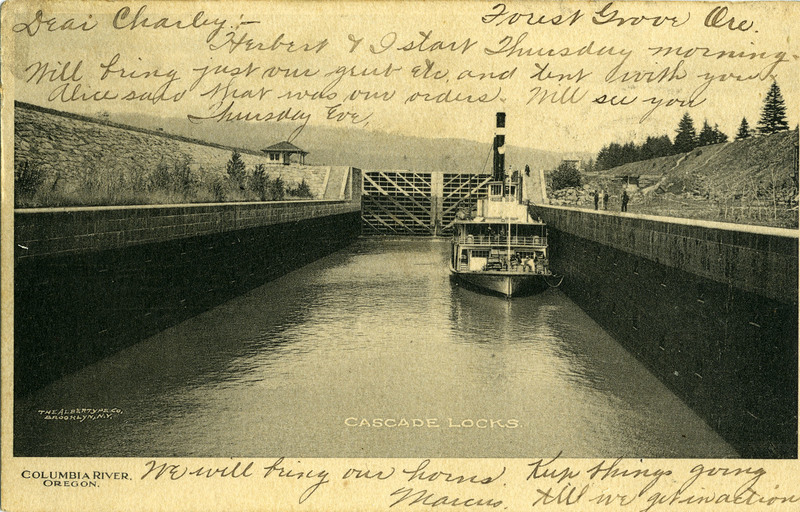 Forest Grove Ore.
Dear Charley:-
Herbert & I start Thursday morning.
Will bring just our grub etc, and tent with you
Alice said that was our orders. Will see you
Thursday Eve,
THE ALBERTYPE CO.,
BROOKLYN, N.Y.
CASCADE LOCKS.
COLUMBIA RIVER,
OREGON.
We will bring our horns Keep things going
Marcus. till we get in action